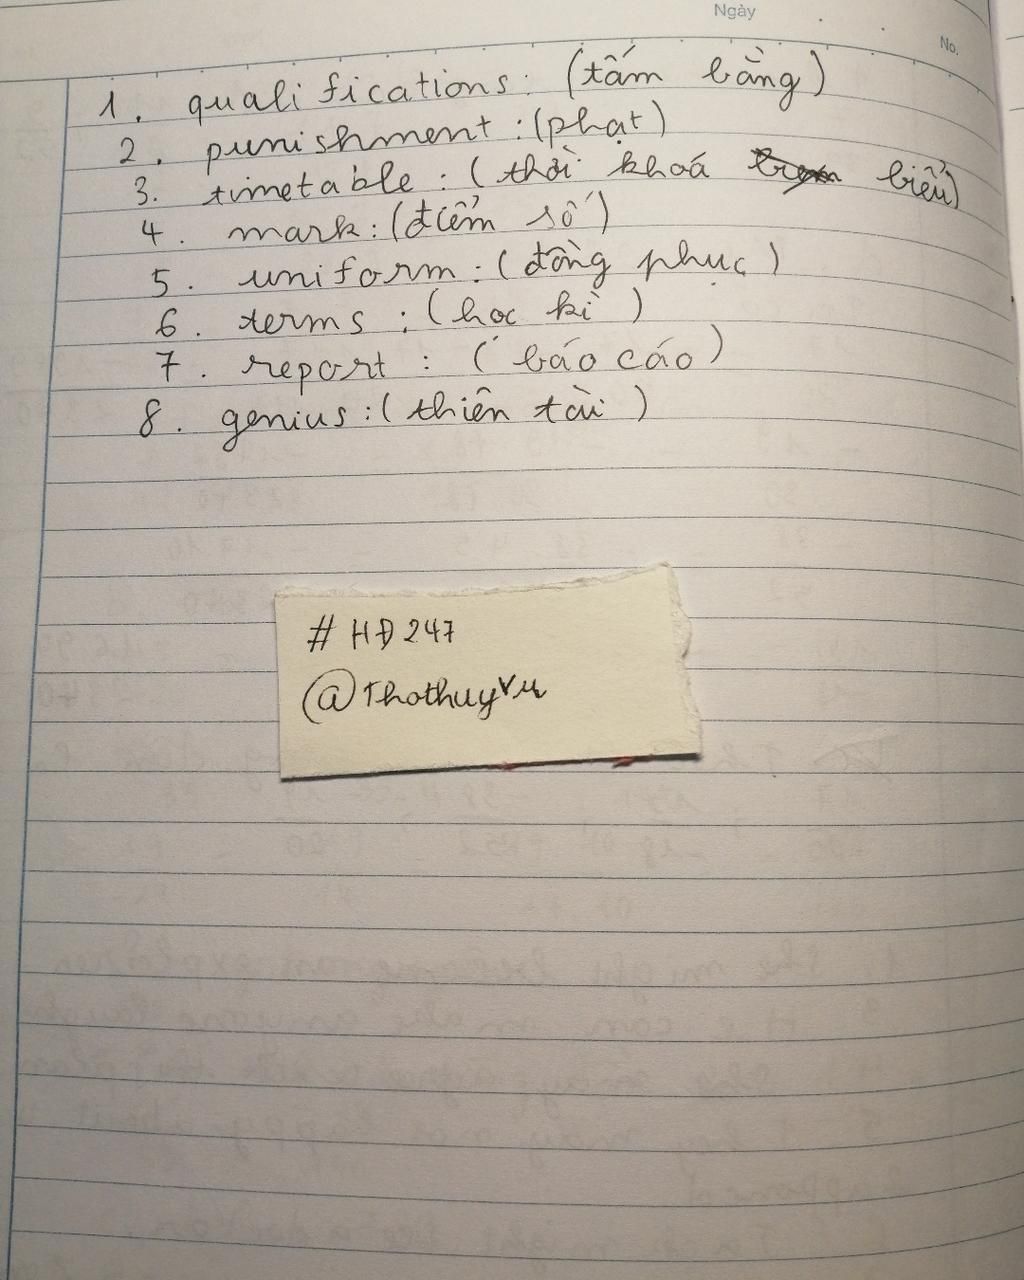 Ngày
No.
1. qualifications: (tấm bằng)
2. punishment: (phạt)
3. timetable: (thời khoá biểu)
4. mark: (điểm số)
5. uniform: (đồng phục)
6. terms: (học kì)
7. report: (báo cáo)
8. genius: (thiên tài)
# HĐ247
@Thothuyvu